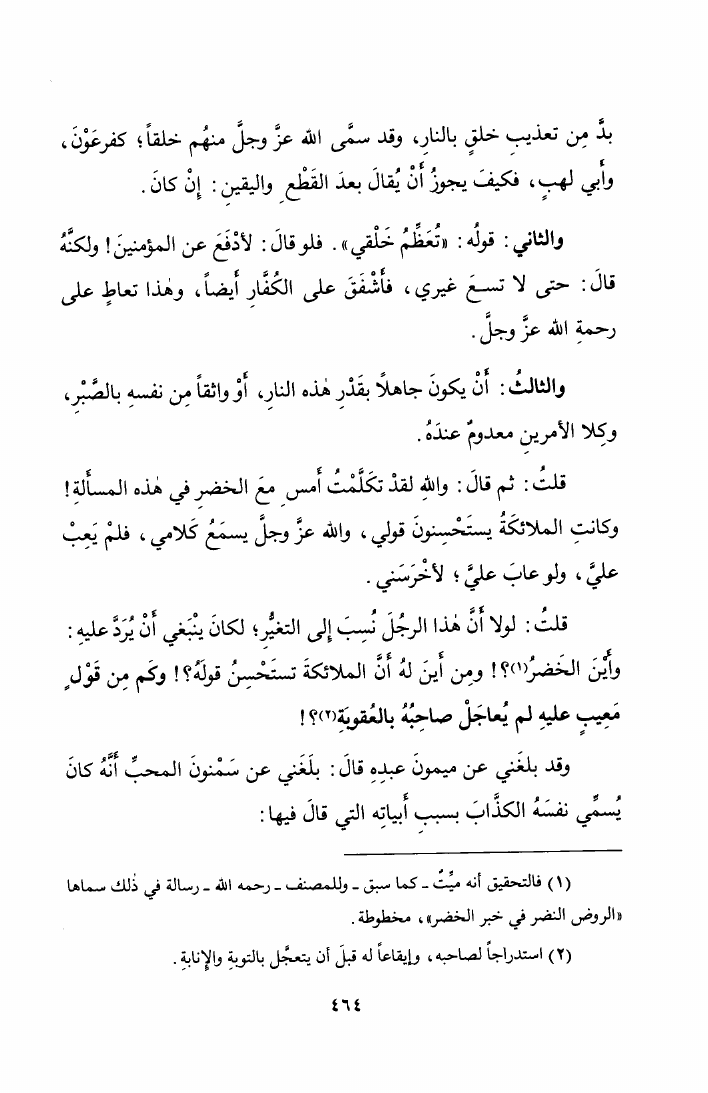 بدَّ مِن تعذيبِ خلقٍ بالنارِ، وقد سمَّى الله عزَّ وجلَّ منهُم خلقاً؛ كفرعَوْنَ،
وأَبي لهبٍ، فكيفَ يجوزُ أَنْ يُقالَ بعدَ القَطْعِ واليقينِ: إِنْ كانَ.
والثاني: قولُه: «تُعَظِّمُ خَلْقي». فلو قالَ: لأدْفَعَ عن المؤمنينَ! ولكنَّهُ
قالَ: حتى لا تسعَ غيري، فأَشْفَقَ على الكُفَّارِ أَيضاً، وهٰذا تعاطٍ على
رحمةِ الله عزَّ وجلَّ.
والثالثُ: أَنْ يكونَ جاهلاً بقَدْرِ هٰذه النارِ، أَوْ واثقاً مِن نفسهِ بالصَّبْرِ،
وكِلا الأمرينِ معدومٌ عندَهُ.
قلتُ: ثم قالَ: واللهِ لقدْ تكَلَّمْتُ أَمسِ معَ الخضرِ في هٰذه المسأَلةِ!
وكانتِ الملائكَةُ يستَحْسِنونَ قولي، والله عزَّ وجلَّ يسمَعُ كَلامي، فلمْ يَعِبْ
عليَّ، ولو عابَ عليَّ؛ لأخْرَسَني.
قلتُ: لولا أَنَّ هٰذا الرجُلَ نُسِبَ إِلى التغيُّرِ؛ لكانَ ينْبَغي أَنْ يُرَدَّ عليهِ:
وأَيْنَ الخَضرُ(١)؟! ومِن أَينَ لهُ أَنَّ الملائكةَ تستَحْسِنُ قولَهُ؟! وكَم مِن قَوْلٍ
مَعِيبٍ عليهِ لم يُعاجَلْ صاحِبُهُ بالعُقوبَةِ(٢)؟!
وقد بلغَني عن ميمونَ عبدِهِ قالَ: بلَغَني عن سَمْنونَ المحبِّ أَنَّهُ كانَ
يُسمِّي نفسَهُ الكذَّابَ بسببِ أَبياتِه التي قالَ فيها:
(١) فالتحقيق أنه ميِّتٌ ـ كما سبق ـ وللمصنف ـ رحمه الله ـ رسالة في ذٰلك سماها
«الروض النضر في خبر الخضر»، مخطوطة.
(٢) استدراجاً لصاحبه، وإيقاعاً له قبلَ أن يتعجَّل بالتوبةِ والإِنابةِ.
٤٦٤